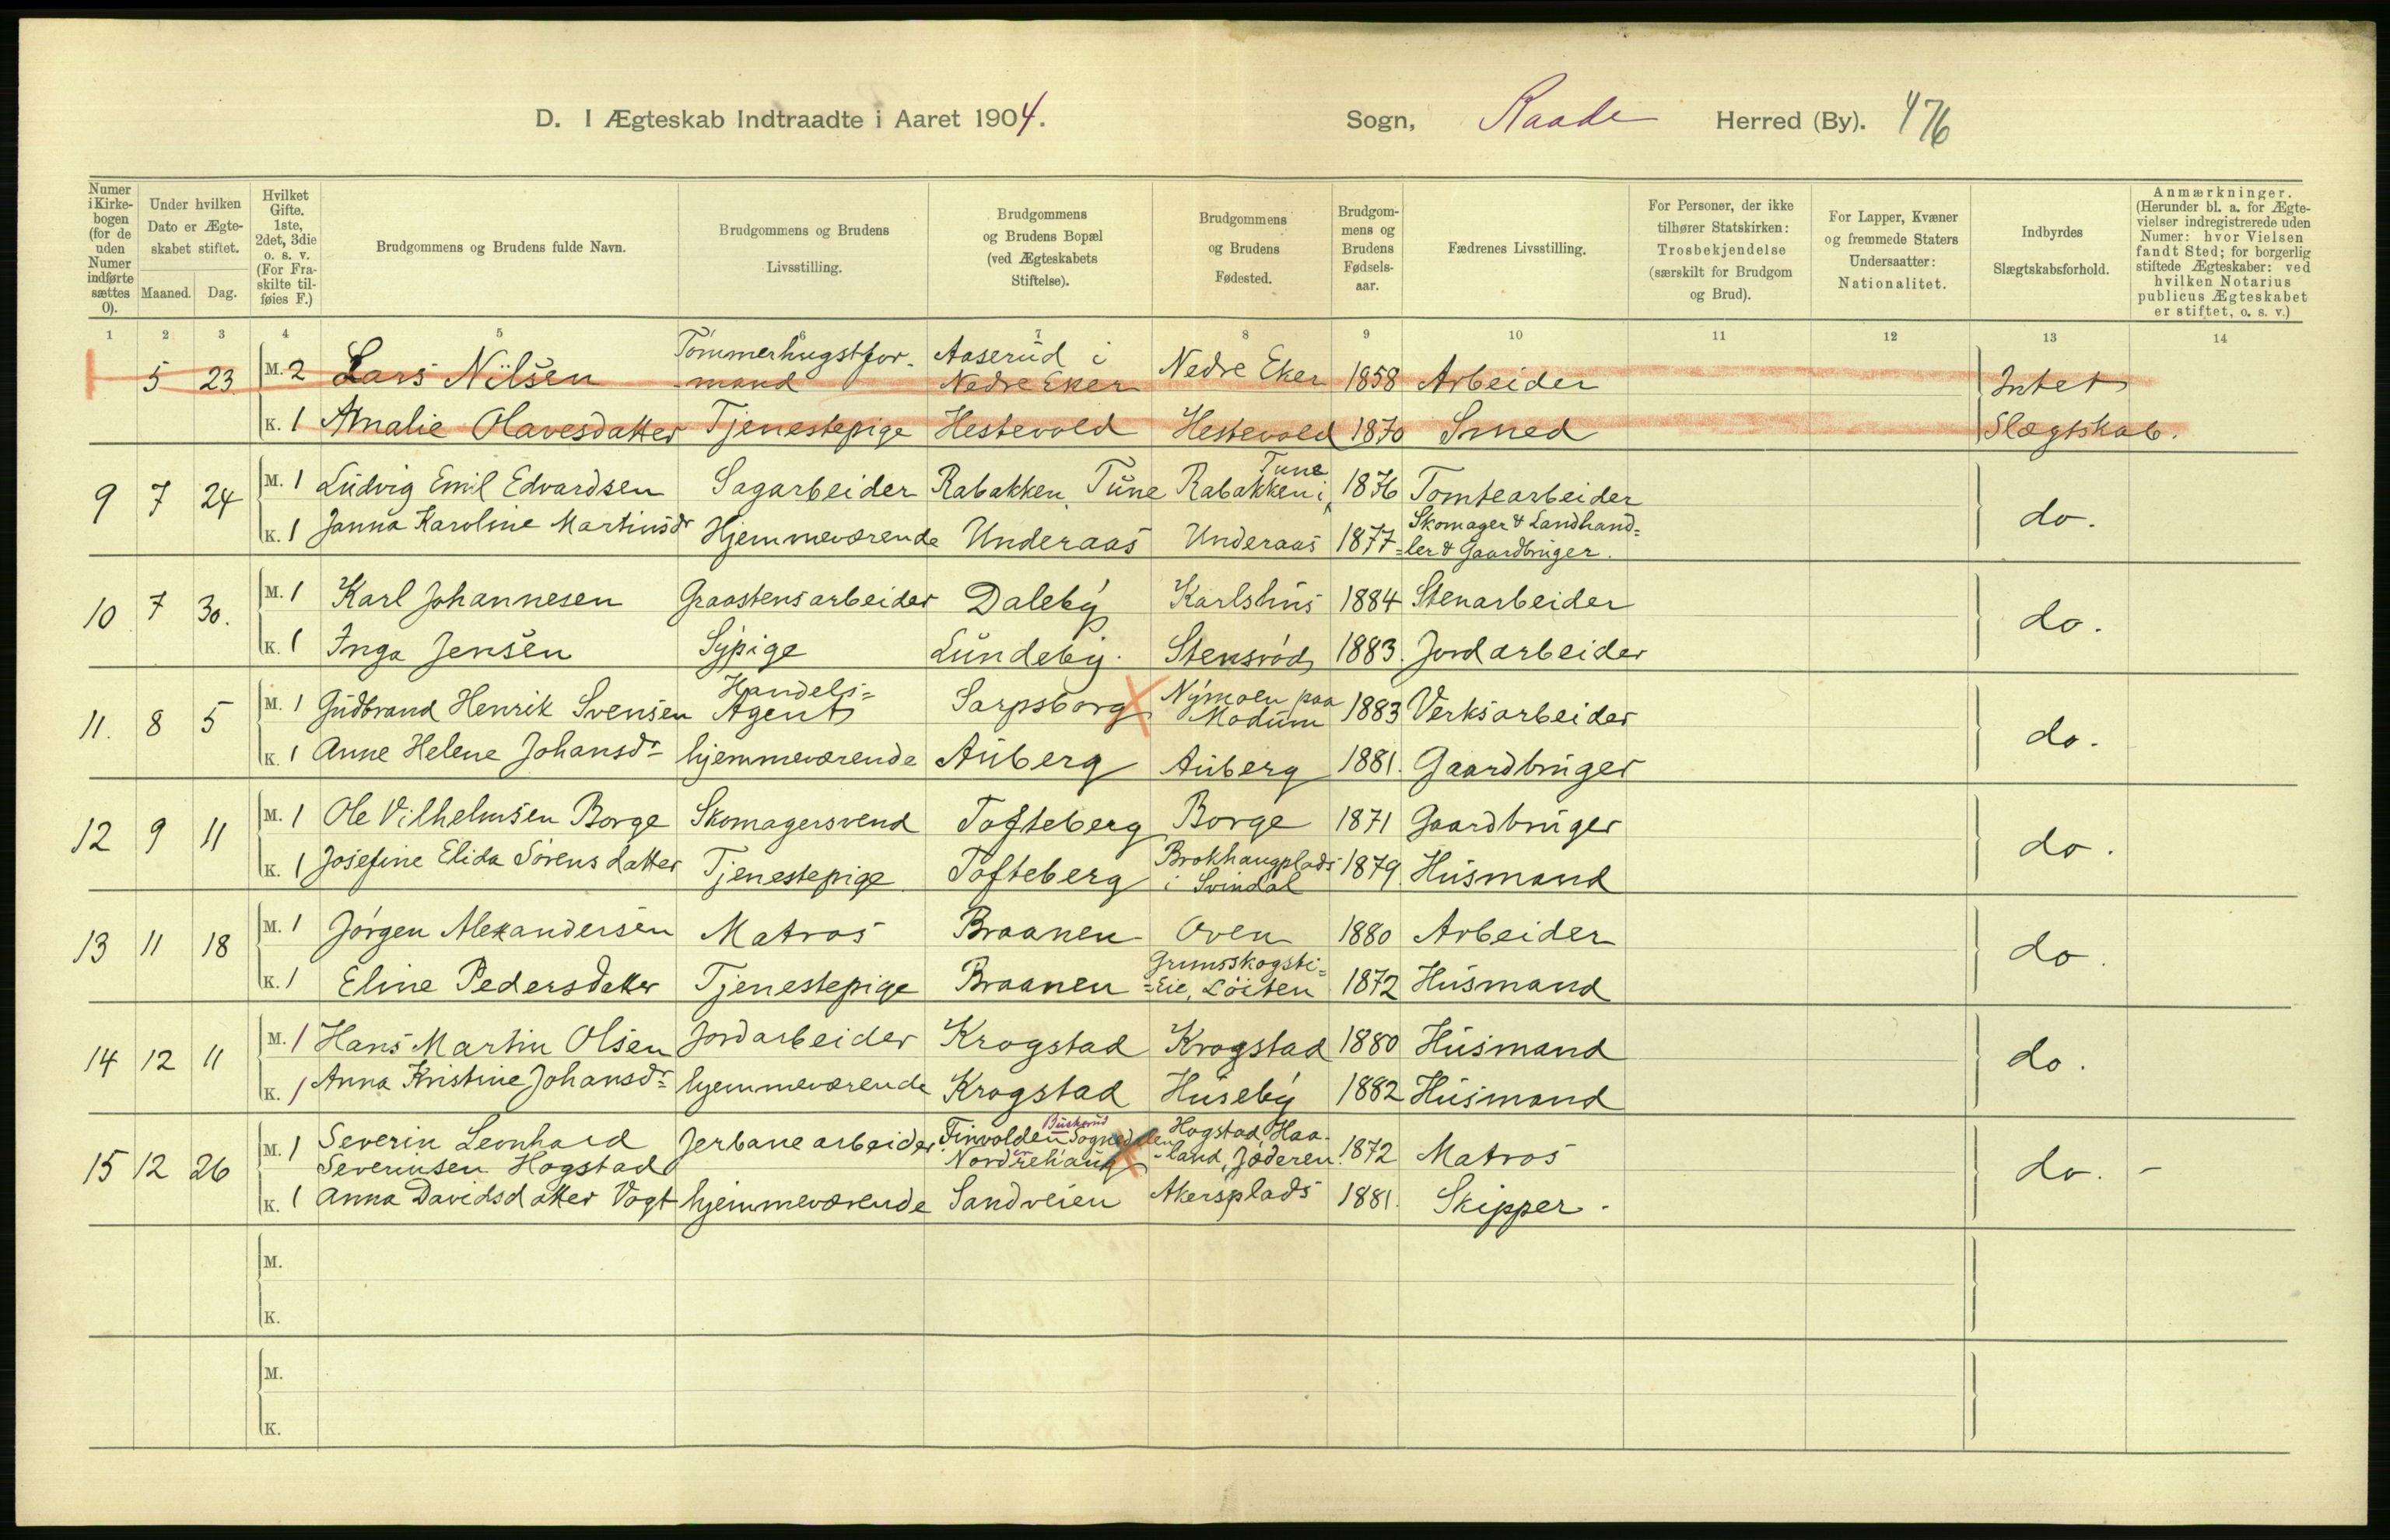 D. I Ægteskab Indtraadte i Aaret 1904. Sogn, Raade Herred (By). 476
Numer i Kirkebogen (for de uden Numer indførte sættes 0).
Under hvilken Dato er Ægteskabet stiftet.
Maaned. Dag.
Hvilket Gifte. 1ste, 2det, 3die o. s. v. (For Fraskilte tilføies F.)
Brudgommens og Brudens fulde Navn.
Brudgommens og Brudens Livsstilling.
Brudgommens og Brudens Bopæl (ved Ægteskabets Stiftelse).
Brudgommens og Brudens Fødested.
Brudgommens og Brudens Fødselsaar.
Fædrenes Livsstilling.
For Personer, der ikke tilhører Statskirken: Trosbekjendelse (særskilt for Brudgom og Brud).
For Lapper, Kvæner og fremmede Staters Undersaatter: Nationalitet.
Indbyrdes Slægtskabsforhold.
Anmærkninger. (Herunder bl. a. for Ægtevielser indregistrerede uden Numer: hvor Vielsen fandt Sted; for borgerlig stiftede Ægteskaber: ved hvilken Notarius publicus Ægteskabet er stiftet, o. s. v.)
1 2 3 4 5 6 7 8 9 10 11 12 13 14
5 23 M. 2 Lars Nilsen Tømmerhugstfor-mand Aaserud i Nedre Eker Nedre Eker 1858 Arbeider Intet
K. 1 Amalie Olavesdatter Tjenestepige Hestevold Hestevold 1870 Smed Slægtskab.
9 7 24 M. 1 Ludvig Emil Edvardsen Sagarbeider Rabakken, Tune Rabakken i Tune 1876 Tomtearbeider do.
K. 1 Janna Karoline Martinsdr Hjemmeværende Underaas Underaas 1877 Skomager & Landhand= =ler & Gaardbruger.
10 7 30. M. 1 Karl Johannesen Graastensarbeider Daleby Karlshus 1884 Stenarbeider do.
K. 1 Inga Jensen Sypige Lundeby. Stensrød 1883. Jordarbeider
11. 8 5 M. 1 Gudbrand Henrik Svensen Handels= Agent Sarpsborg Nymoen paa Modum 1883 Verksarbeider do.
K. 1 Anne Helene Johansdr hjemmeværende Auberg Auberg 1881. Gaardbruger
12 9 11 M. 1 Ole Vilhelmsen Borge Skomagersvend Tofteberg Borge 1871 Gaardbruger do.
K. 1 Josefine Elida Sørensdatter Tjenestepige Tofteberg Brokhaugplads i Svindal 1879. Husmand
13 11 18 M. 1 Jørgen Alexandersen Matros Braanen Oven 1880 Arbeider do.
K. 1 Eline Pedersdatter Tjenestepige Braanen Grumsskogsti= =Eie, Løiten 1872 Husmand
14 12 11 M. 1 Hans Martin Olsen Jordarbeider Krogstad Krogstad 1880 Husmand do.
K. 1 Anna Kristine Johansdr hjemmeværende Krogstad Huseby 1882 Husmand
15 12 26 M. 1 Severin Leonhard Severinsen Hogstad Jerbanearbeider. Finvolden Sognedalen Buskerud Nordrehaug Hogstad, Haa-land, Jæderen. 1872 Matros do. -
K. 1 Anna Davidsdatter Vogt hjemmeværende Sandveien Akersplads 1881. Skipper.
M.
K.
M.
K.